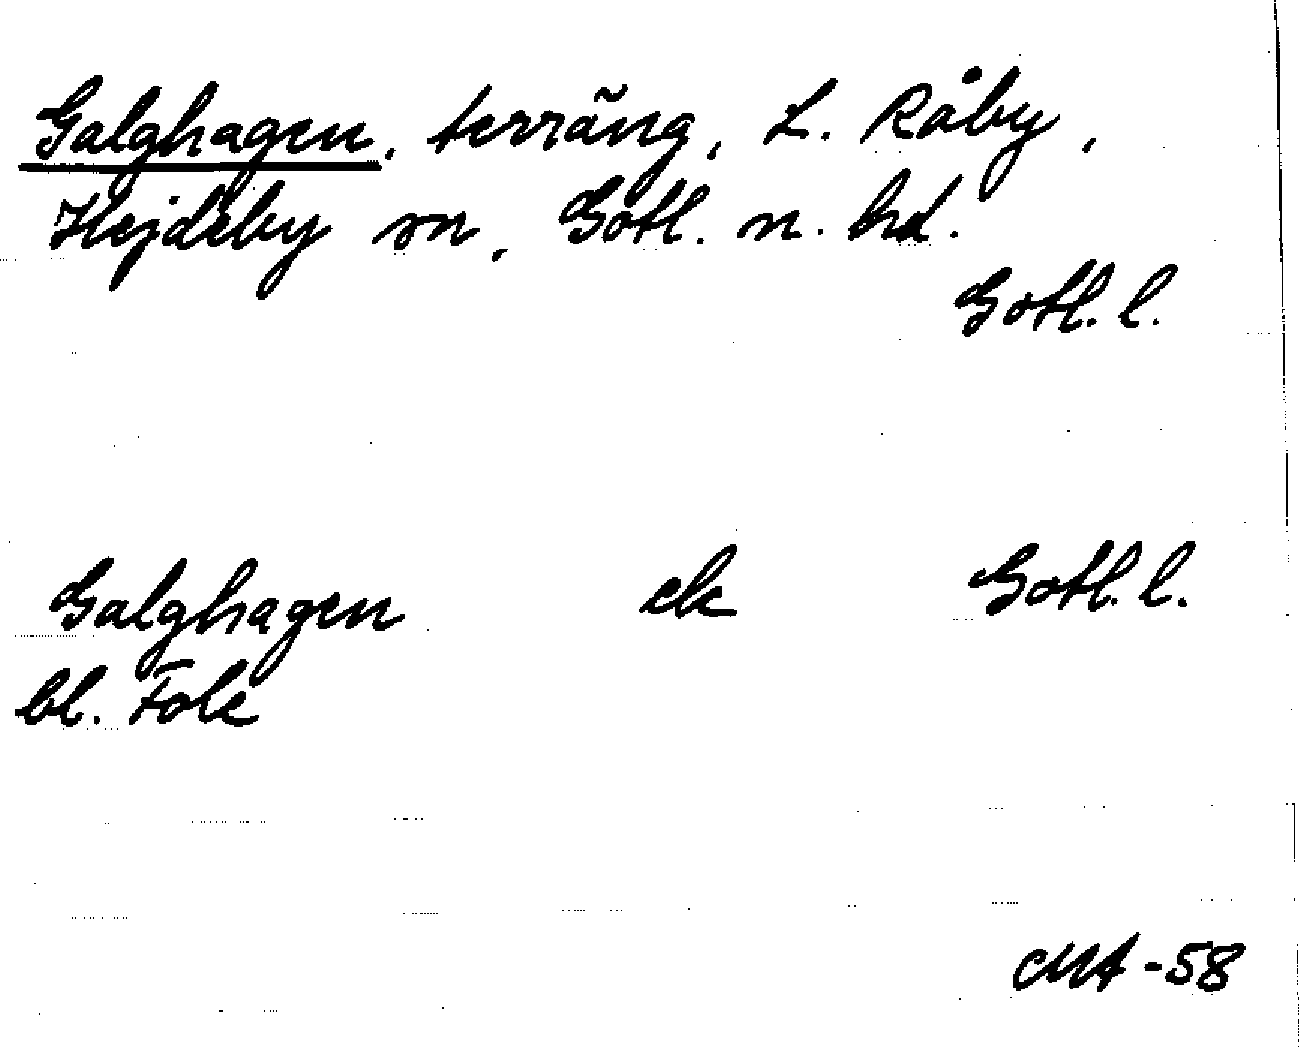 Galghagen, terräng, L. Råby,
Hejdeby sn, Gotl. n. hd.
Gotl. l.
Galghagen ek Gotl. l.
bl. Fole
MA -58